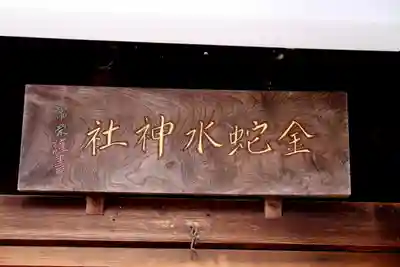 金蛇水神社